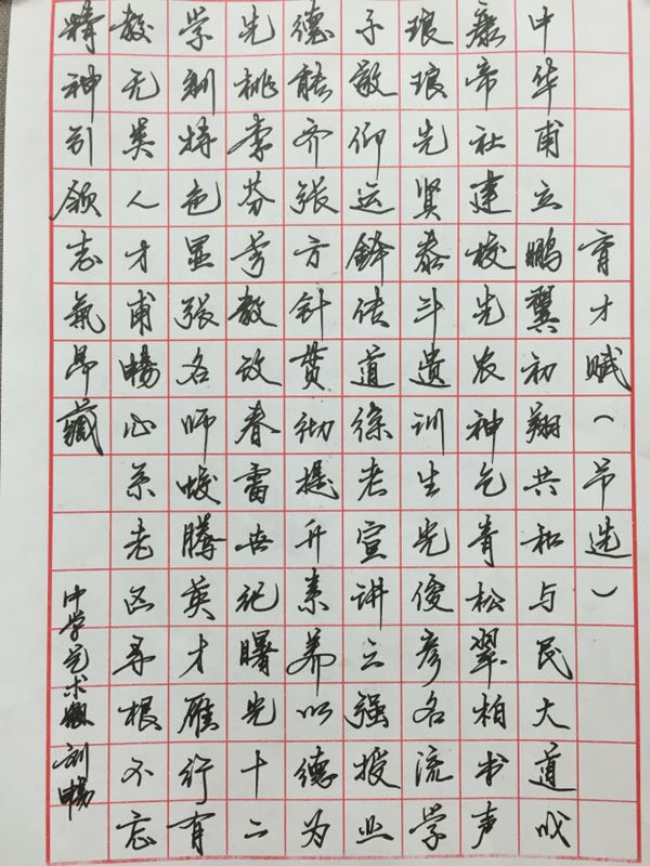 育才赋(节选)
中华甫立鹏翼初翔共和与民大道成
康帝社建校先农神乞青松翠柏书声
琅琅先贤泰斗遗训生光俊彦各流学
子敬仰运传道徐老宣讲立强授业
德能齐张方针贯彻提升素养以德为
先桃李芬芳教改春雷世纪曙光十二
学制特色显张名师蛟腾英才雁行有
教无类人才甫畅心系老区寻根不忘
精神引领志气昂藏
中学艺术组 刘畅